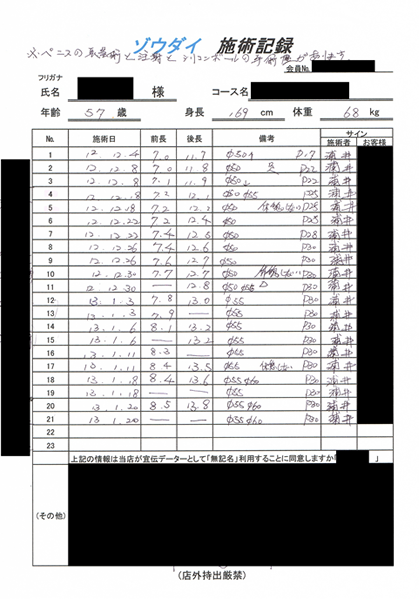 ゾウダイ 施術記録
※ペニスの
会員No.
フリガナ
氏名 様 コース名
年齢 57 歳 身長 169 cm 体重 68 kg
No. 施術日 前長 後長 備考 サイン
施術者 お客様
1 12.12.4 7.0 11.7 φ50 P17 浦井
2 12.12.8 7.0 11.8 φ50 P22 浦井
3 12.12.8 7.1 11.9 φ50 P22 浦井
4 12.12.18 12.1 φ50 φ55 P25 浦井
5 12.12.18 7.2 φ50 P25 浦井
6 12.12.22 7.2 12.4 φ50 P25 浦井
7 12.12.22 7.4 12.5 φ50 P28 浦井
8 12.12.26 7.4 12.6 φ50 P30 浦井
9 12.12.26 7.6 12.7 φ50 P30 浦井
10 12.12.30 7.7 12.7 φ50 P30 浦井
11 12.12.30 — 12.8 φ50 φ55 P30 浦井
12 13.1.3 7.8 13.0 φ55 P30 浦井
13 13.1.3 7.9 — φ55 P30 浦井
14 13.1.6 8.1 13.2 φ55 P30 浦井
15 13.1.6 — 13.2 φ55 P30 浦井
16 13.1.11 8.3 — φ55 P30 浦井
17 13.1.11 8.4 13.5 φ55 P30 浦井
18 13.1.18 8.4 13.6 φ55 φ60 P30 浦井
19 13.1.18 — — φ55 P30 浦井
20 13.1.20 8.5 13.8 φ55 φ60 P30 浦井
21 13.1.20 — — φ55 φ60 P30 浦井
22
23
上記の情報は当店が宣伝データーとして「無記名」利用することに同意しますか 」
(その他)
(店外持出厳禁)